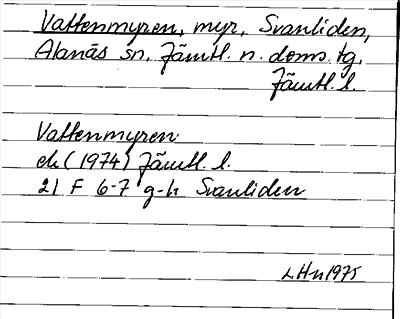 Vattenmyren, myr, Svanliden,
Alanäs sn, Jämtl. n. doms. tg,
Jämtl. l.
Vattenmyren
ek (1974) Jämtl. l.
21 F 6-7 g-h Svanliden
LHn 1975